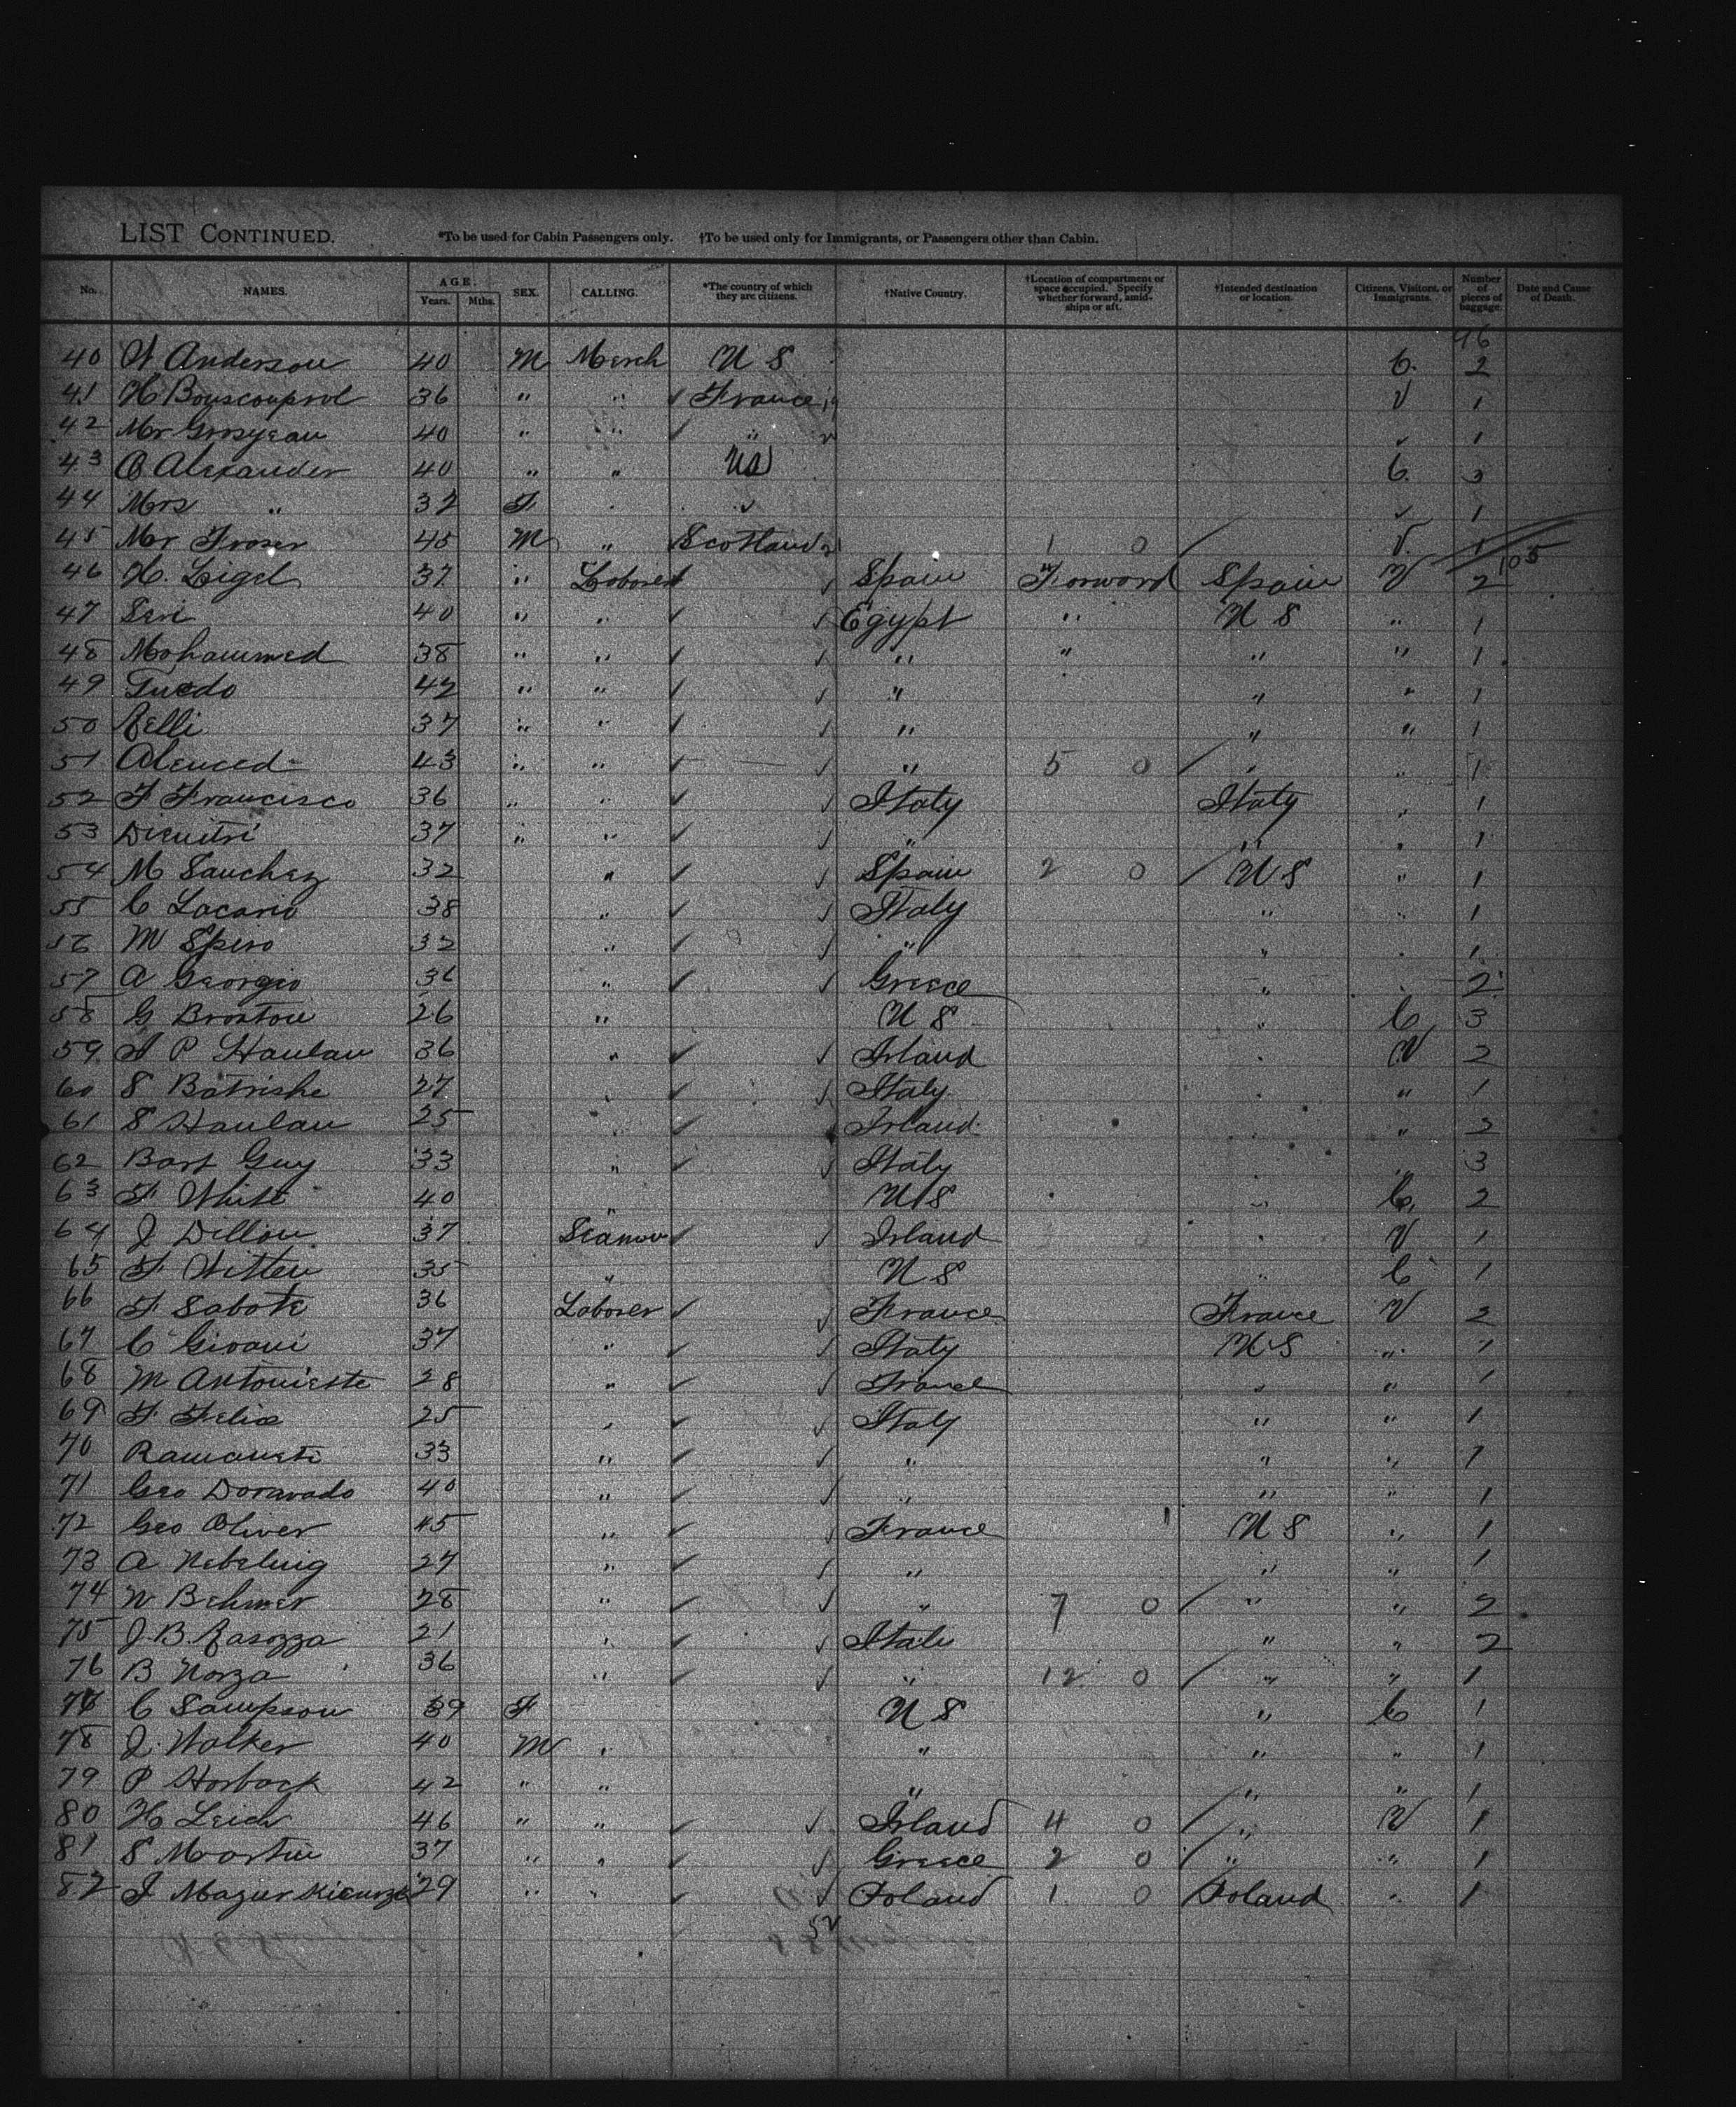 LIST CONTINUED. *To be used for Cabin Passengers only. †To be used only for Immigrants, or Passengers other than Cabin.
No. NAMES. AGE. Years. Mths. SEX. CALLING. *The country of which they are citizens. †Native Country. †Location of compartment or space occupied. Specify whether forward, amidships or aft. †Intended destination or location. Citizens, Visitors, or Immigrants. Number of pieces of baggage. Date and Cause of Death.
96
40 W Anderson 40 M Merch U S C. 2
41 H 36 " " France V 1
42 Mr Grosyeau 40 " " " " 1
43 Alexander 40 " " US C. 3
44 Mrs " 32 F " " 1
45 Mr Fraser 45 M " Scotland 1 0 V. 1
105
46 H. Ligel 37 " Laborer Spain Forward Spain V 2
47 Seri 40 " " Egypt " U S " 1
48 Mohammed 38 " " " " " " 1
49 Tuedo 42 " " " " " 1
50 Relli 37 " " " " " 1
51 43 " " " 5 0 " " 1
52 F Francisco 36 " " Italy Italy " 1
53 Dimitri 37 " " " " " 1
54 M Sanchez 32 " Spain 2 0 U S " 1
55 C Lacario 38 " Italy " " 1
56 M Spiro 32 " " " " 1
57 A Georgio 36 " Greece " " 2
58 G Broxton 26 " U S " C 3
59 P Hanlan 36 " Irland " V 2
60 S Batrishe 27 " Italy " " 1
61 S Hanlan 25 Irland " " 2
62 Bart Guy 33 " Italy " 3
63 F White 40 " U S " C. 2
64 J Dellon 37 Seamen Irland " V 1
65 F Witten 35 " U S " C 1
66 F Sabote 36 Laborer France France V 2
67 C Giovani 37 " Italy U S " 1
68 M Antonieste 28 " France " " 1
69 F Felix 25 " Italy " " 1
70 Ramonete 33 " " " " 1
71 Geo Doravado 40 " " " " 1
72 Geo Oliver 45 " France U S " 1
73 A Nebeluig 27 " " " " 1
74 W Behmer 28 " " 7 0 " " 2
75 J. B. Rasozza 21 " Itali " " 2
76 B Norza 36 " " 12 0 " " 1
77 C Sampson 39 F U S " C 1
78 J. Walker 40 M " " " " 1
79 P Horback 42 " " " " " 1
80 H Leich 46 " " Irland 4 0 " V 1
81 S Martin 37 " " Greece 2 0 " " 1
82 J 29 " " Poland 1 0 Poland " 1